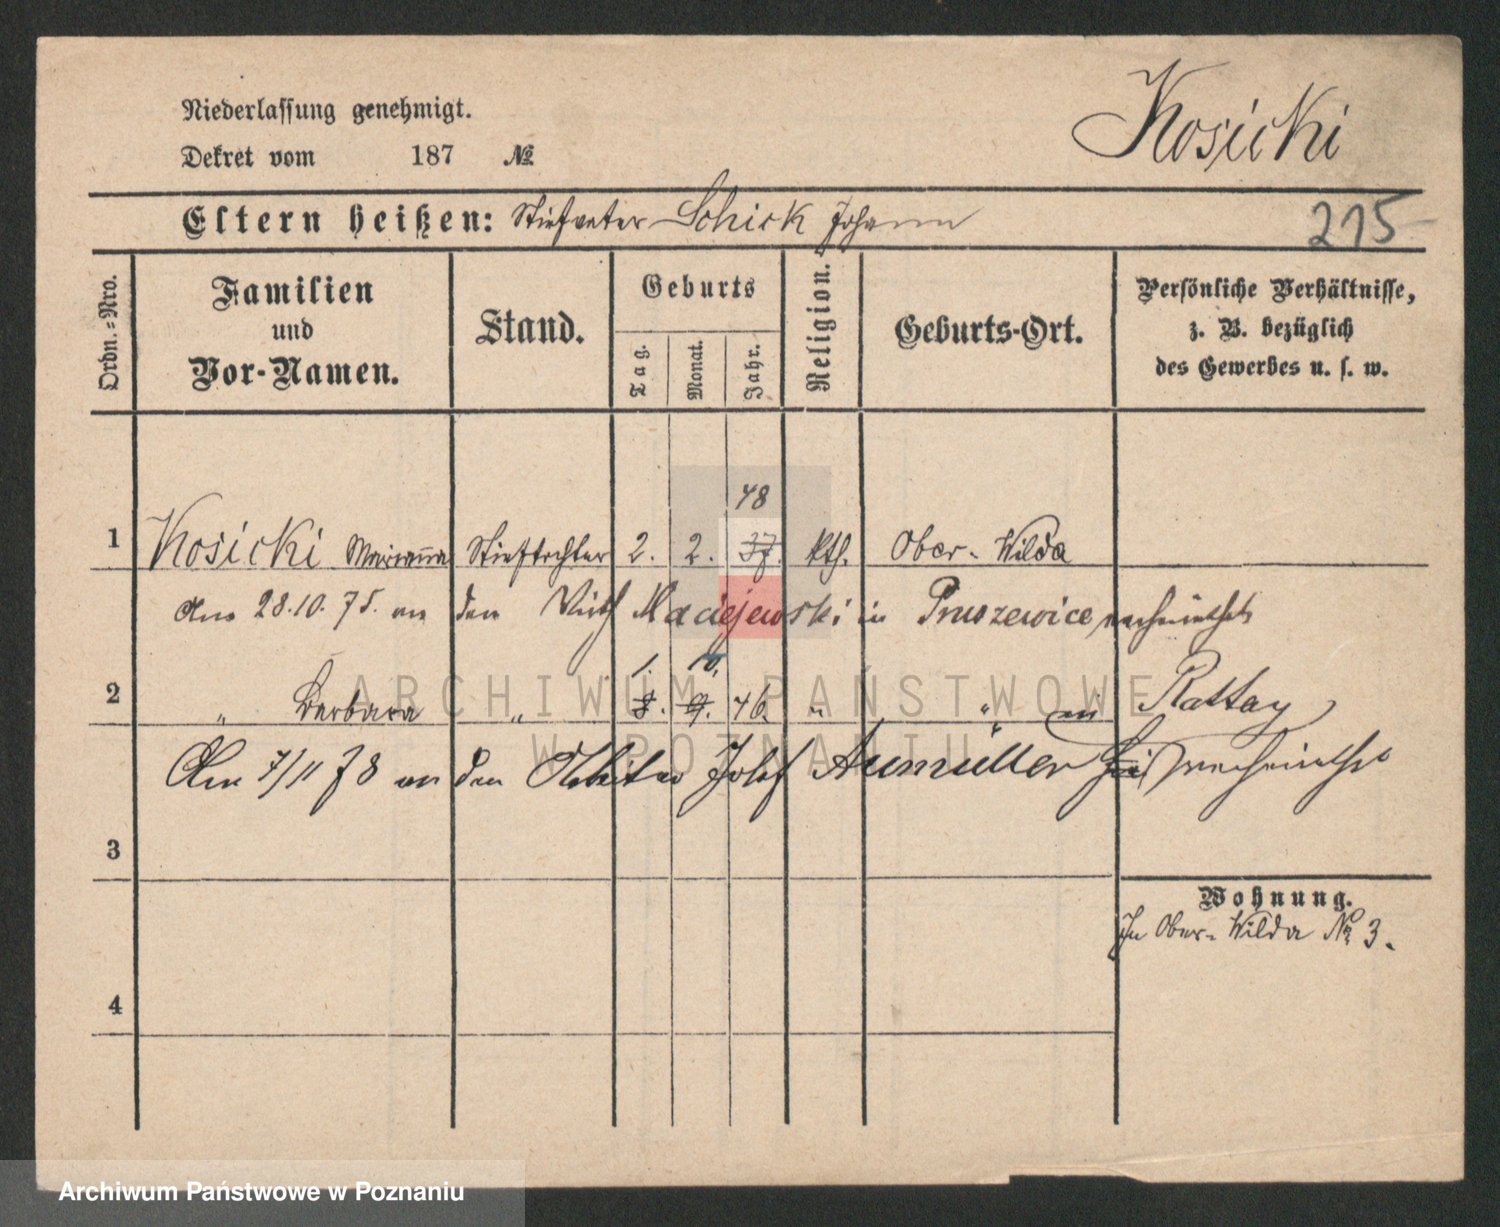 Kosicki
Niederlassung genehmigt.
Dekret vom 187 №
Eltern heißen: Stiefvater Schick Johann
215
Ordn.=Nro.
Familien und Vor-Namen.
Stand.
Geburts
Tag.
Monat.
Jahr.
Religion.
Geburts-Ort.
Persönliche Verhältnisse,
z. B. bezüglich
des Gewerbes u. s. w.
48
1 Kosicki Marianna Stieftochter 2. 2. 37. kth. Ober-Wilda
Am 28.10.75. an den Wirth Maciejewski in Pruszewice verheirathet
1. 10.
2 " Barbara " 8. 9. 46. " " in Rattay
Am 7/11 78 an den Arbeiter Josef Aumüller verheirathet
3
Wohnung.
In Ober-Wilda № 3.
4
ARCHIWUM PAŃSTWOWE
W POZNANIU
Archiwum Państwowe w Poznaniu